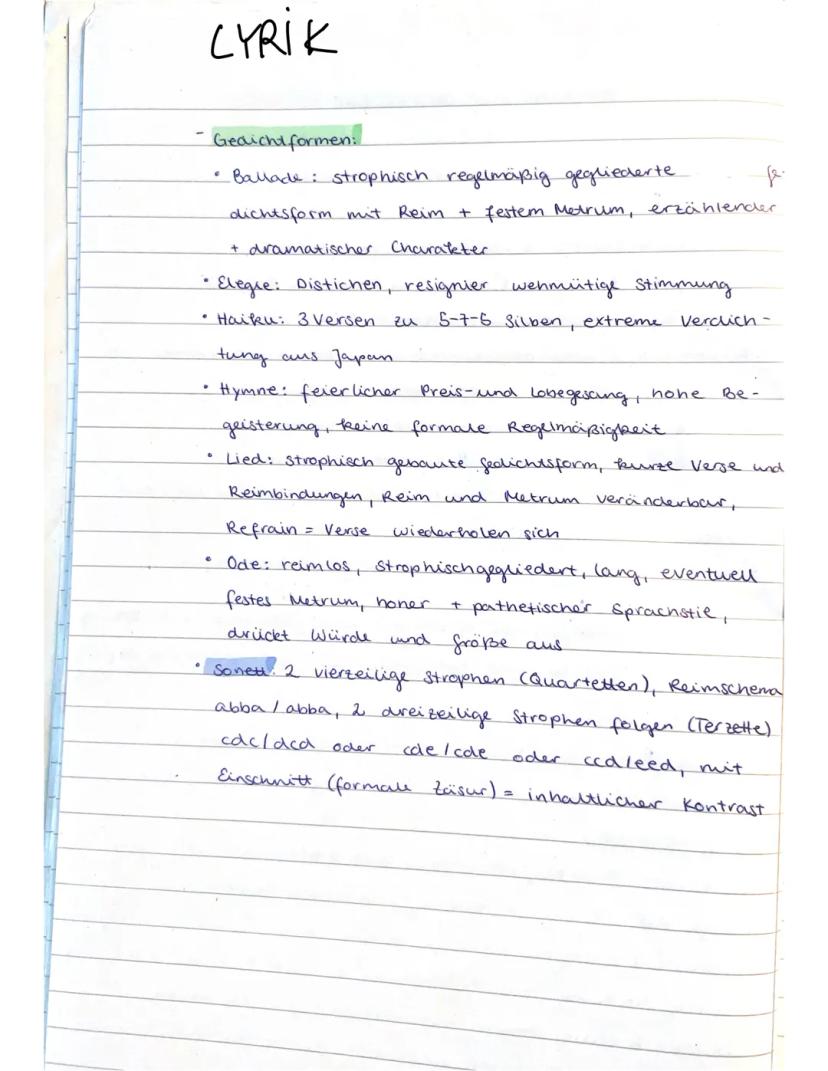 LYRIK
- Gedichtformen:
• Ballade: strophisch regelmäßig gegliederte Ge-
dichtsform mit Reim + festem Metrum, erzählender
+ dramatischer Charakter
• Elegie: Distichen, resignier wehmütige Stimmung
• Haiku: 3 Versen zu 5-7-5 Silben, extreme Verdich-
tung aus Japan
• Hymne: feierlicher Preis- und Lobegesang, hohe Be-
geisterung, keine formale Regelmäßigkeit
• Lied: strophisch gebaute Gedichtsform, kurze Verse und
Reimbindungen, Reim und Metrum veränderbar,
Refrain = Verse wiederholen sich
• Ode: reimlos, strophisch gegliedert, lang, eventuell
festes Metrum, hoher + pathetischer Sprachstil,
drückt Würde und Größe aus
• Sonett: 2 vierzeilige Strophen (Quartetten), Reimschema
abba/abba, 2 dreizeilige Strophen folgen (Terzette)
cdc/dcd oder cde/cde oder ccd/eed, mit
Einschnitt (formale Zäsur) = inhaltlicher Kontrast